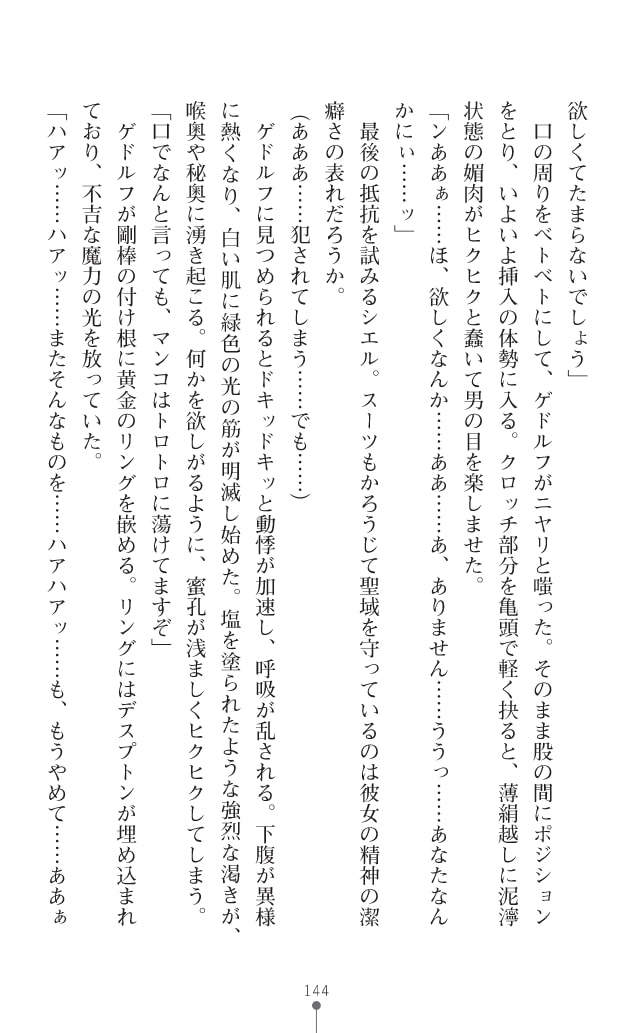 欲しくてたまらないでしょう」
　口の周りをベトベトにして、ゲドルフがニヤリと嗤った。そのまま股の間にポジション
をとり、いよいよ挿入の体勢に入る。クロッチ部分を亀頭で軽く抉ると、薄絹越しに泥濘
状態の媚肉がヒクヒクと蠢いて男の目を楽しませた。
「ンああぁ……ほ、欲しくなんか……ああ……あ、ありません……ううっ……あなたなん
かにぃ……ッ」
　最後の抵抗を試みるシエル。スーツもかろうじて聖域を守っているのは彼女の精神の潔
癖さの表れだろうか。
（あああ……犯されてしまう……でも……）
　ゲドルフに見つめられるとドキッドキッと動悸が加速し、呼吸が乱される。下腹が異様
に熱くなり、白い肌に緑色の光の筋が明滅し始めた。塩を塗られたような強烈な渇きが、
喉奥や秘奥に湧き起こる。何かを欲しがるように、蜜孔が浅ましくヒクヒクしてしまう。
「口でなんと言っても、マンコはトロトロに蕩けてますぞ」
　ゲドルフが剛棒の付け根に黄金のリングを嵌める。リングにはデスプトンが埋め込まれ
ており、不吉な魔力の光を放っていた。
「ハアッ……ハアッ……またそんなものを……ハアハアッ……も、もうやめて……ああぁ
144